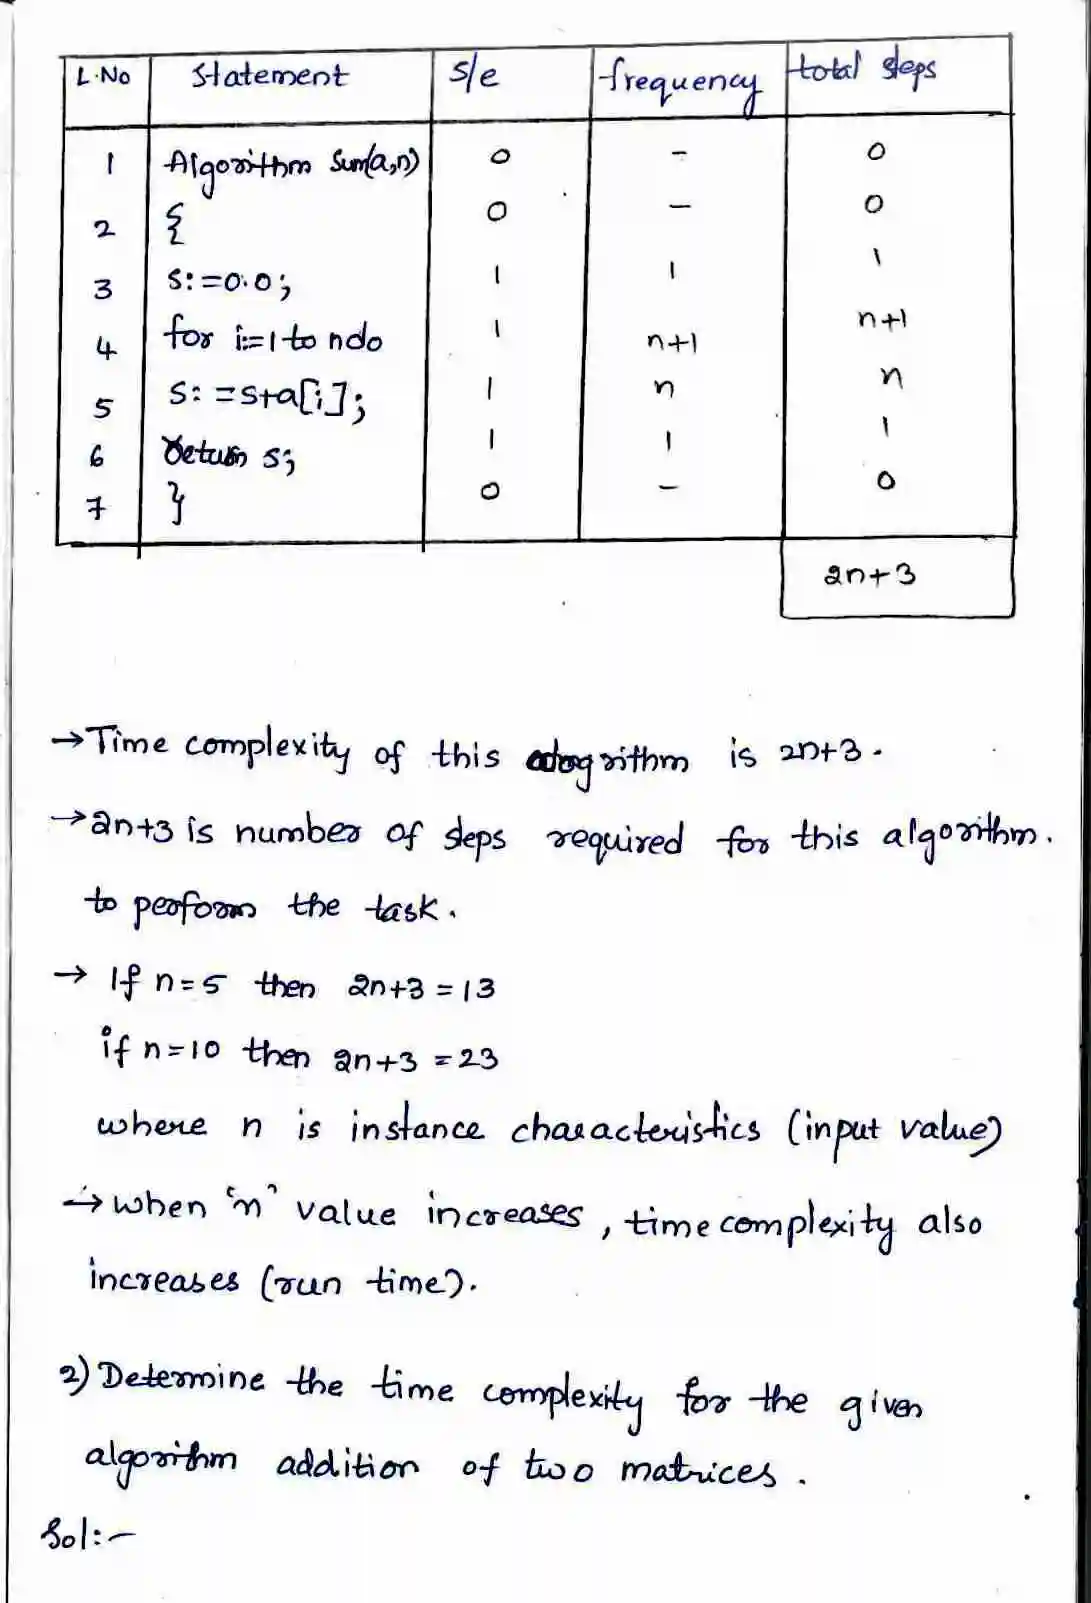 L.No Statement s/e frequency total steps
1 Algorithm Sum(a,n) 0 - 0
2 { 0 - 0
3 s:=0.0; 1 1 1
4 for i:=1 to n do 1 n+1 n+1
5 s:=s+a[i]; 1 n n
6 return s; 1 1 1
7 } 0 - 0
2n+3
→ Time complexity of this algorithm is 2n+3.
→ 2n+3 is number of steps required for this algorithm.
to perform the task.
→ If n=5 then 2n+3 = 13
if n=10 then 2n+3 = 23
where n is instance characteristics (input value)
→ when 'n' value increases, time complexity also
increases (run time).
2) Determine the time complexity for the given
algorithm addition of two matrices.
Sol:-